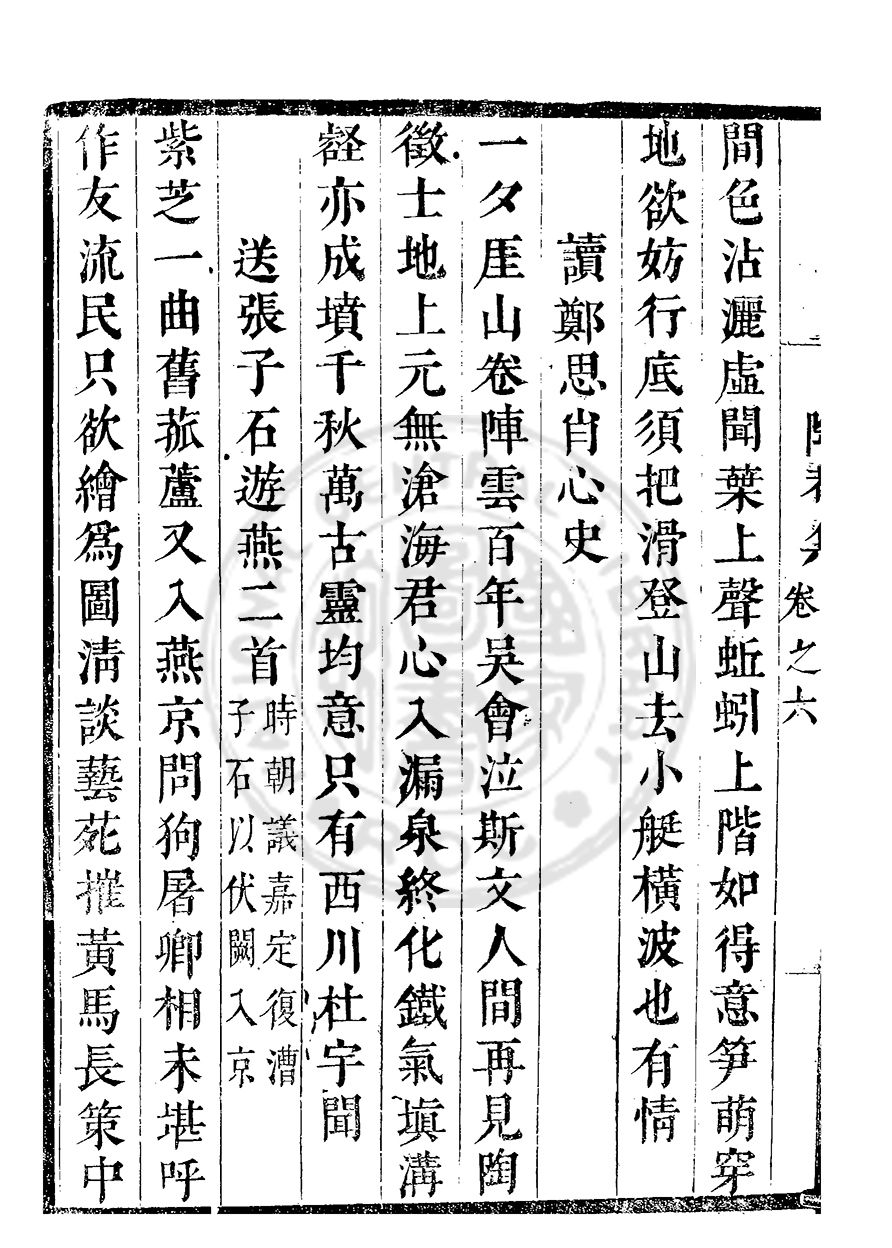 卷之六
間色沾灑虛聞葉上聲蚯蚓上階如得意笋萌穿
地欲妨行底須把滑登山去小艇橫波也有情
讀鄭思肖心史
一夕厓山卷陣雲百年吳會泣斯文人間再見陶
徵士地上元無滄海君心入漏泉終化鐵氣塡溝
壑亦成墳千秋萬古靈均意只有西川杜宇聞
送張子石遊燕二首時朝議嘉定復漕
子石以伏闕入京
紫芝一曲舊菰蘆又入燕京問狗屠卿相未堪呼
作友流民只欲繪爲圖淸談藝苑摧黃馬長策中